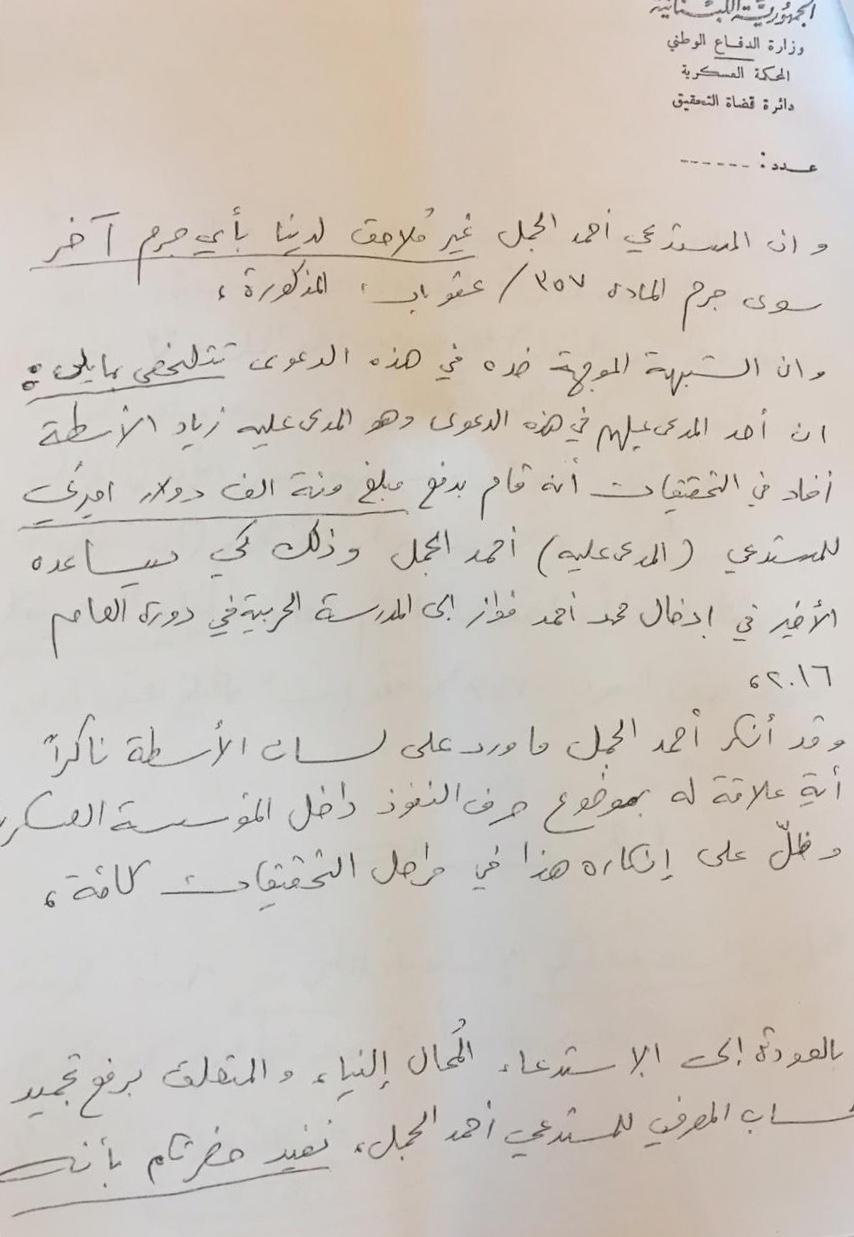 الجمهورية اللبنانية
وزارة الدفاع الوطني
المحكمة العسكرية
دائرة قضاة التحقيق
عدد: ------
وان المستدعي أحمد الجمل غير مُلاحق لدينا بأي جرم آخر
سوى جرم المادة ٣٥٧/ عقوبات، المذكورة،
وان الشبهة الموجهة ضده في هذه الدعوى تتلخص بما يلي:
ان أحد المدعى عليهم في هذه الدعوى وهو المدعى عليه زياد الأسطة
أفاد في التحقيقات أنه قام بدفع مبلغ مئة الف دولار اميركي
للمستدعي (المدعى عليه) أحمد الجمل وذلك كي يساعده
الأخير في إدخال محمد أحمد فواز الى المدرسة الحربية في دورة العام
٢٠١٦،
وقد أنكر أحمد الجمل ما ورد على لسان الأسطة ناكراً
أية علاقة له بموضوع صرف النفوذ داخل المؤسسة العسكر
وظلّ على إنكاره هذا في مراحل التحقيقات كافة،
بالعودة إلى الإستدعاء المُحال إلينا، والمتعلق برفع تجميد
حساب المصرفي للمستدعي أحمد الجمل، نفيد حضرتكم بأنه